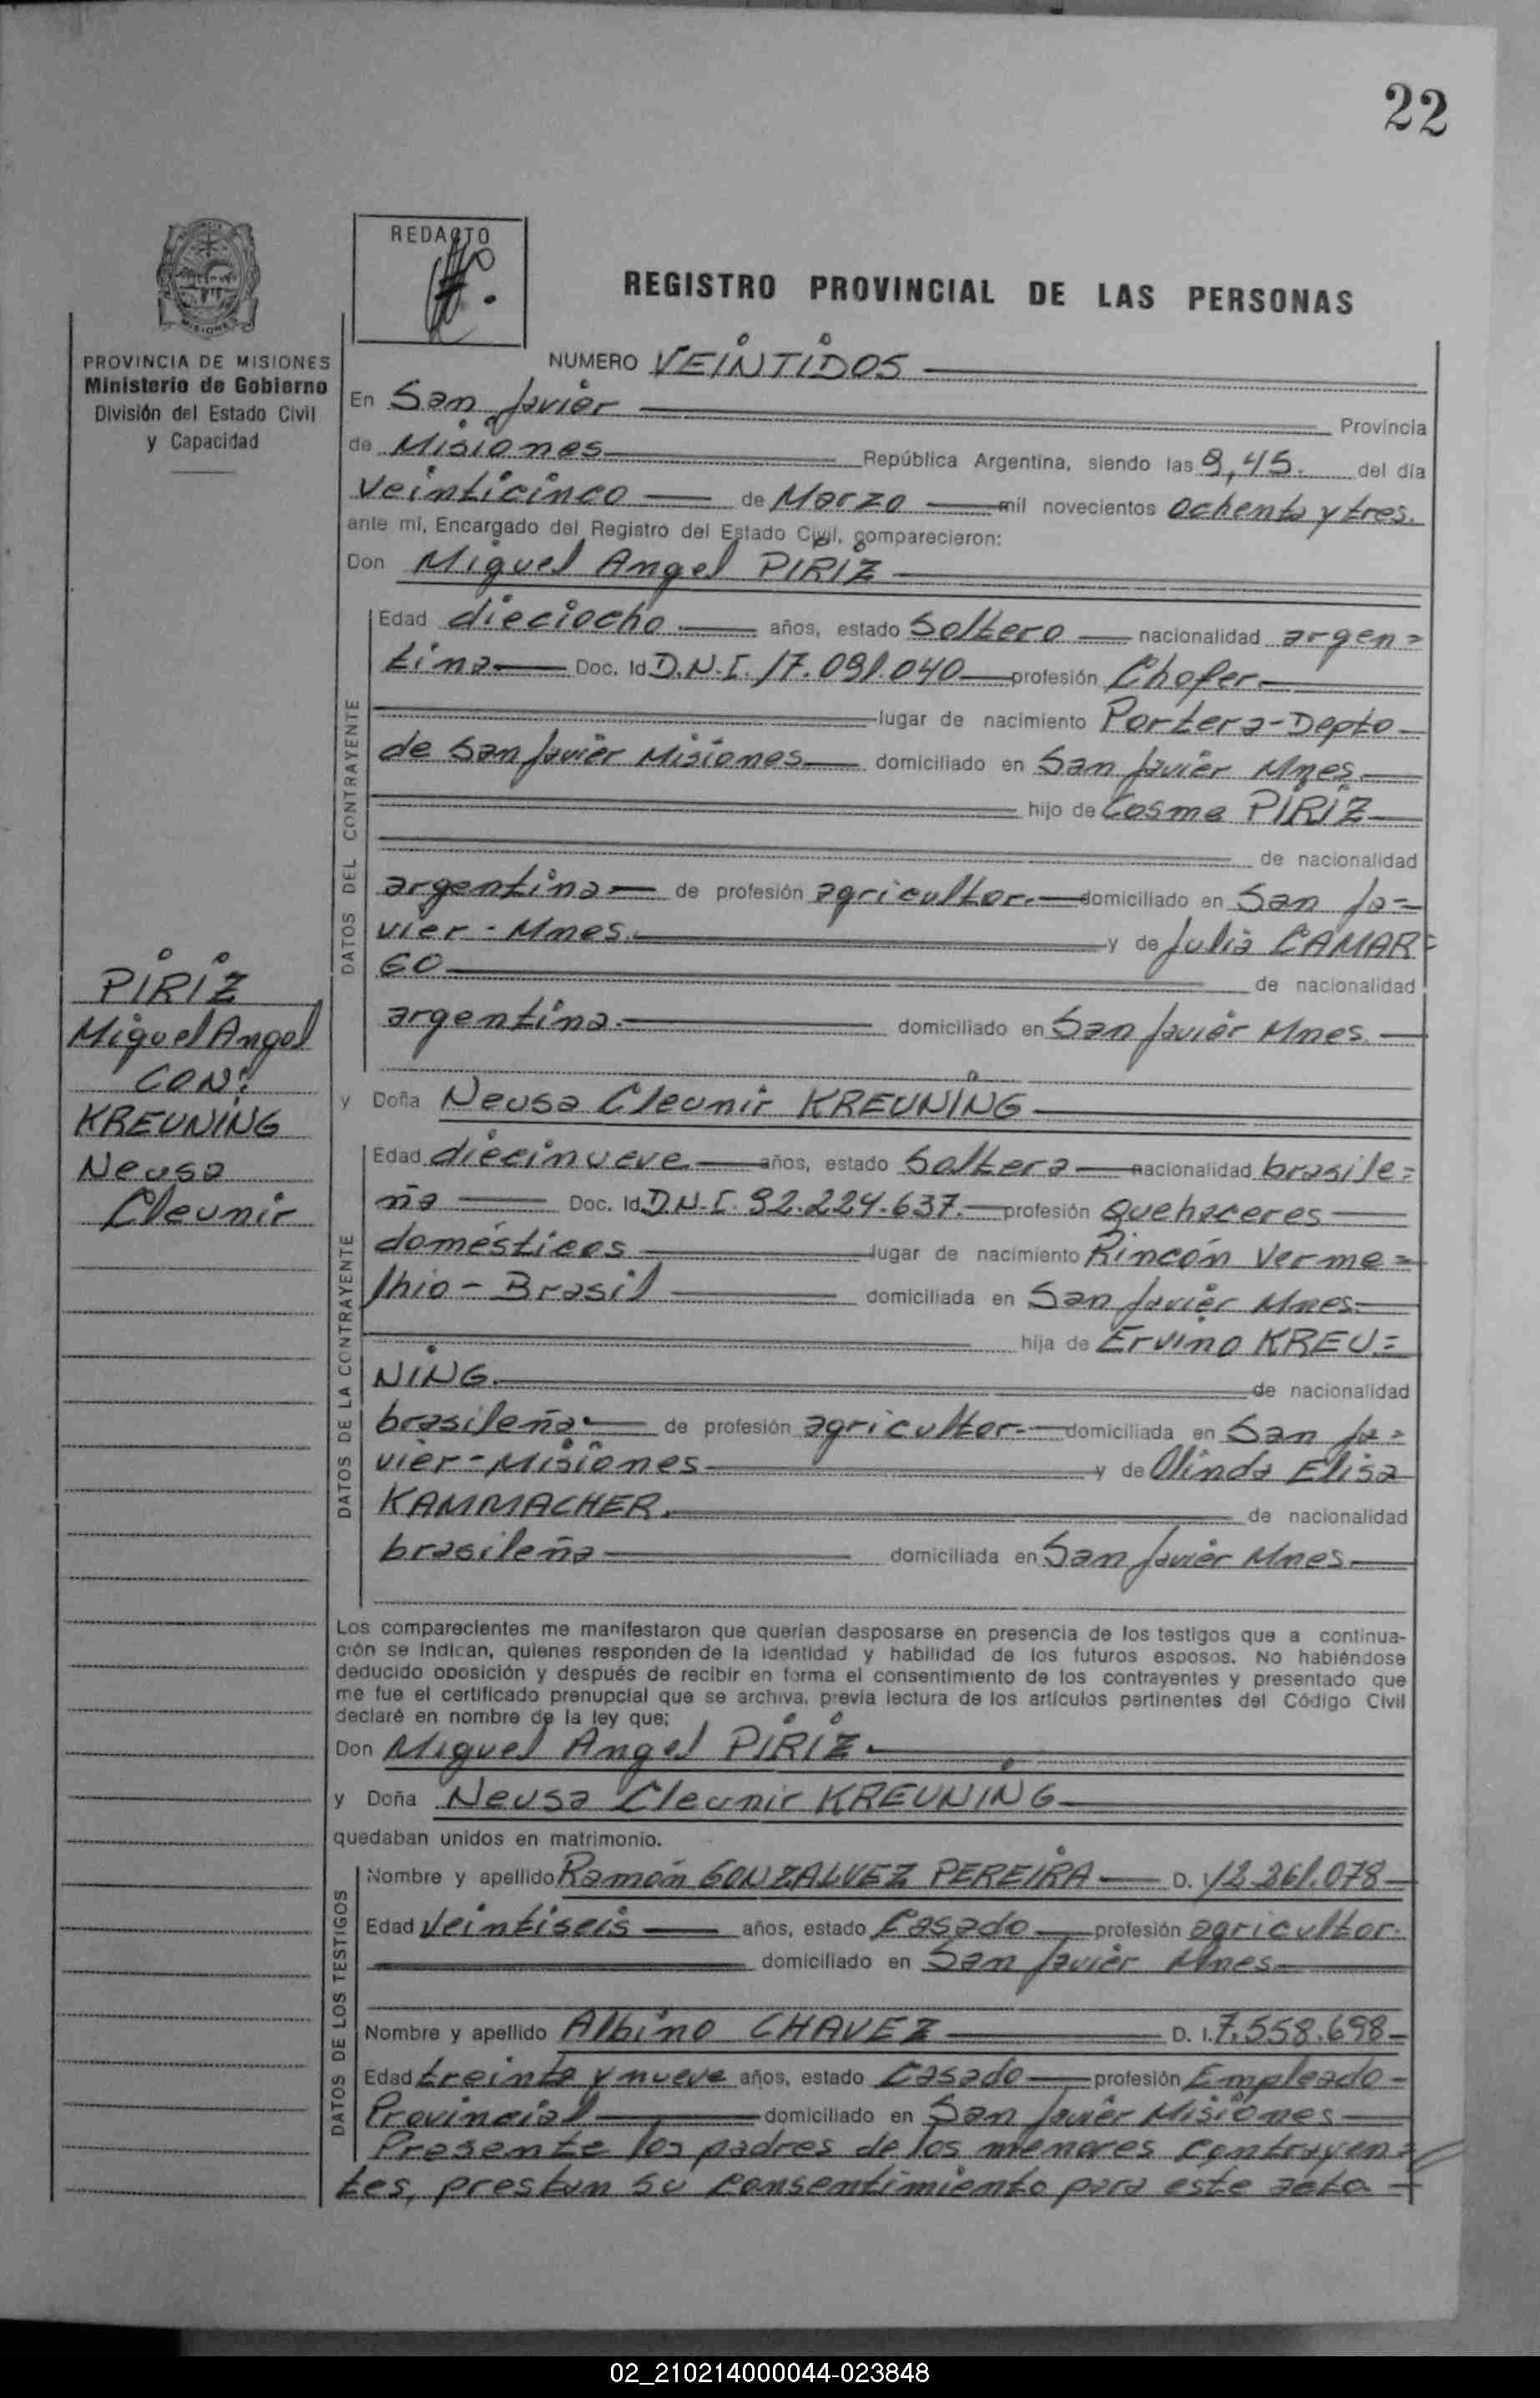 22
REDACTO
REGISTRO PROVINCIAL DE LAS PERSONAS
MISIONES
PROVINCIA DE MISIONES
Ministerio de Gobierno
División del Estado Civil
y Capacidad
NUMERO VEINTIDOS
En San Javier Provincia
de Misiones República Argentina, siendo las 9,45. del día
veinticinco de Marzo mil novecientos ochenta y tres.
ante mí, Encargado del Registro del Estado Civil, comparecieron:
Don Miguel Angel PIRIZ
DATOS DEL CONTRAYENTE
Edad dieciocho años, estado Soltero nacionalidad argen=
tina Doc. Id D.N.I. 17.091.040 profesión Chofer.
lugar de nacimiento Portera-Depto
de San Javier Misiones domiciliado en San Javier Mnes.
hijo de Cosme PIRIZ
de nacionalidad
argentina de profesión agricultor. domiciliado en San Ja=
vier - Mnes. y de Julia CAMAR=
GO de nacionalidad
argentina. domiciliado en San Javier Mnes.
PIRIZ
Miguel Angel
CON:
KREUNING
Neusa
Cleunir
y Doña Neusa Cleunir KREUNING
DATOS DE LA CONTRAYENTE
Edad diecinueve años, estado Soltera nacionalidad brasile=
ña Doc. Id D.N.I. 92.224.637. profesión Quehaceres
domésticos lugar de nacimiento Rincón Verme=
lhio - Brasil domiciliada en San Javier Mnes.
hija de Ervino KREU=
NING. de nacionalidad
brasileña de profesión agricultor. domiciliada en San Ja=
vier - Misiones y de Olinda Elisa
KAMMACHER. de nacionalidad
brasileña domiciliada en San Javier Mnes.
Los comparecientes me manifestaron que querían desposarse en presencia de los testigos que a continua-
ción se indican, quienes responden de la identidad y habilidad de los futuros esposos. No habiéndose
deducido oposición y después de recibir en forma el consentimiento de los contrayentes y presentado que
me fue el certificado prenupcial que se archiva, previa lectura de los artículos pertinentes del Código Civil
declaré en nombre de la ley que;
Don Miguel Angel PIRIZ.
y Doña Neusa Cleunir KREUNING
quedaban unidos en matrimonio.
DATOS DE LOS TESTIGOS
Nombre y apellido Ramón GONZALVEZ PEREIRA D. I 12.261.078
Edad Veintiseis años, estado Casado profesión agricultor.
domiciliado en San Javier Mnes
Nombre y apellido Albino CHAVEZ D. I. 7.558.698
Edad treinta y nueve años, estado Casado profesión Empleado
Provincial domiciliado en San Javier Misiones
Presente los padres de los menores contrayen=
tes, prestan su consentimiento para este acto
02_210214000044-023848